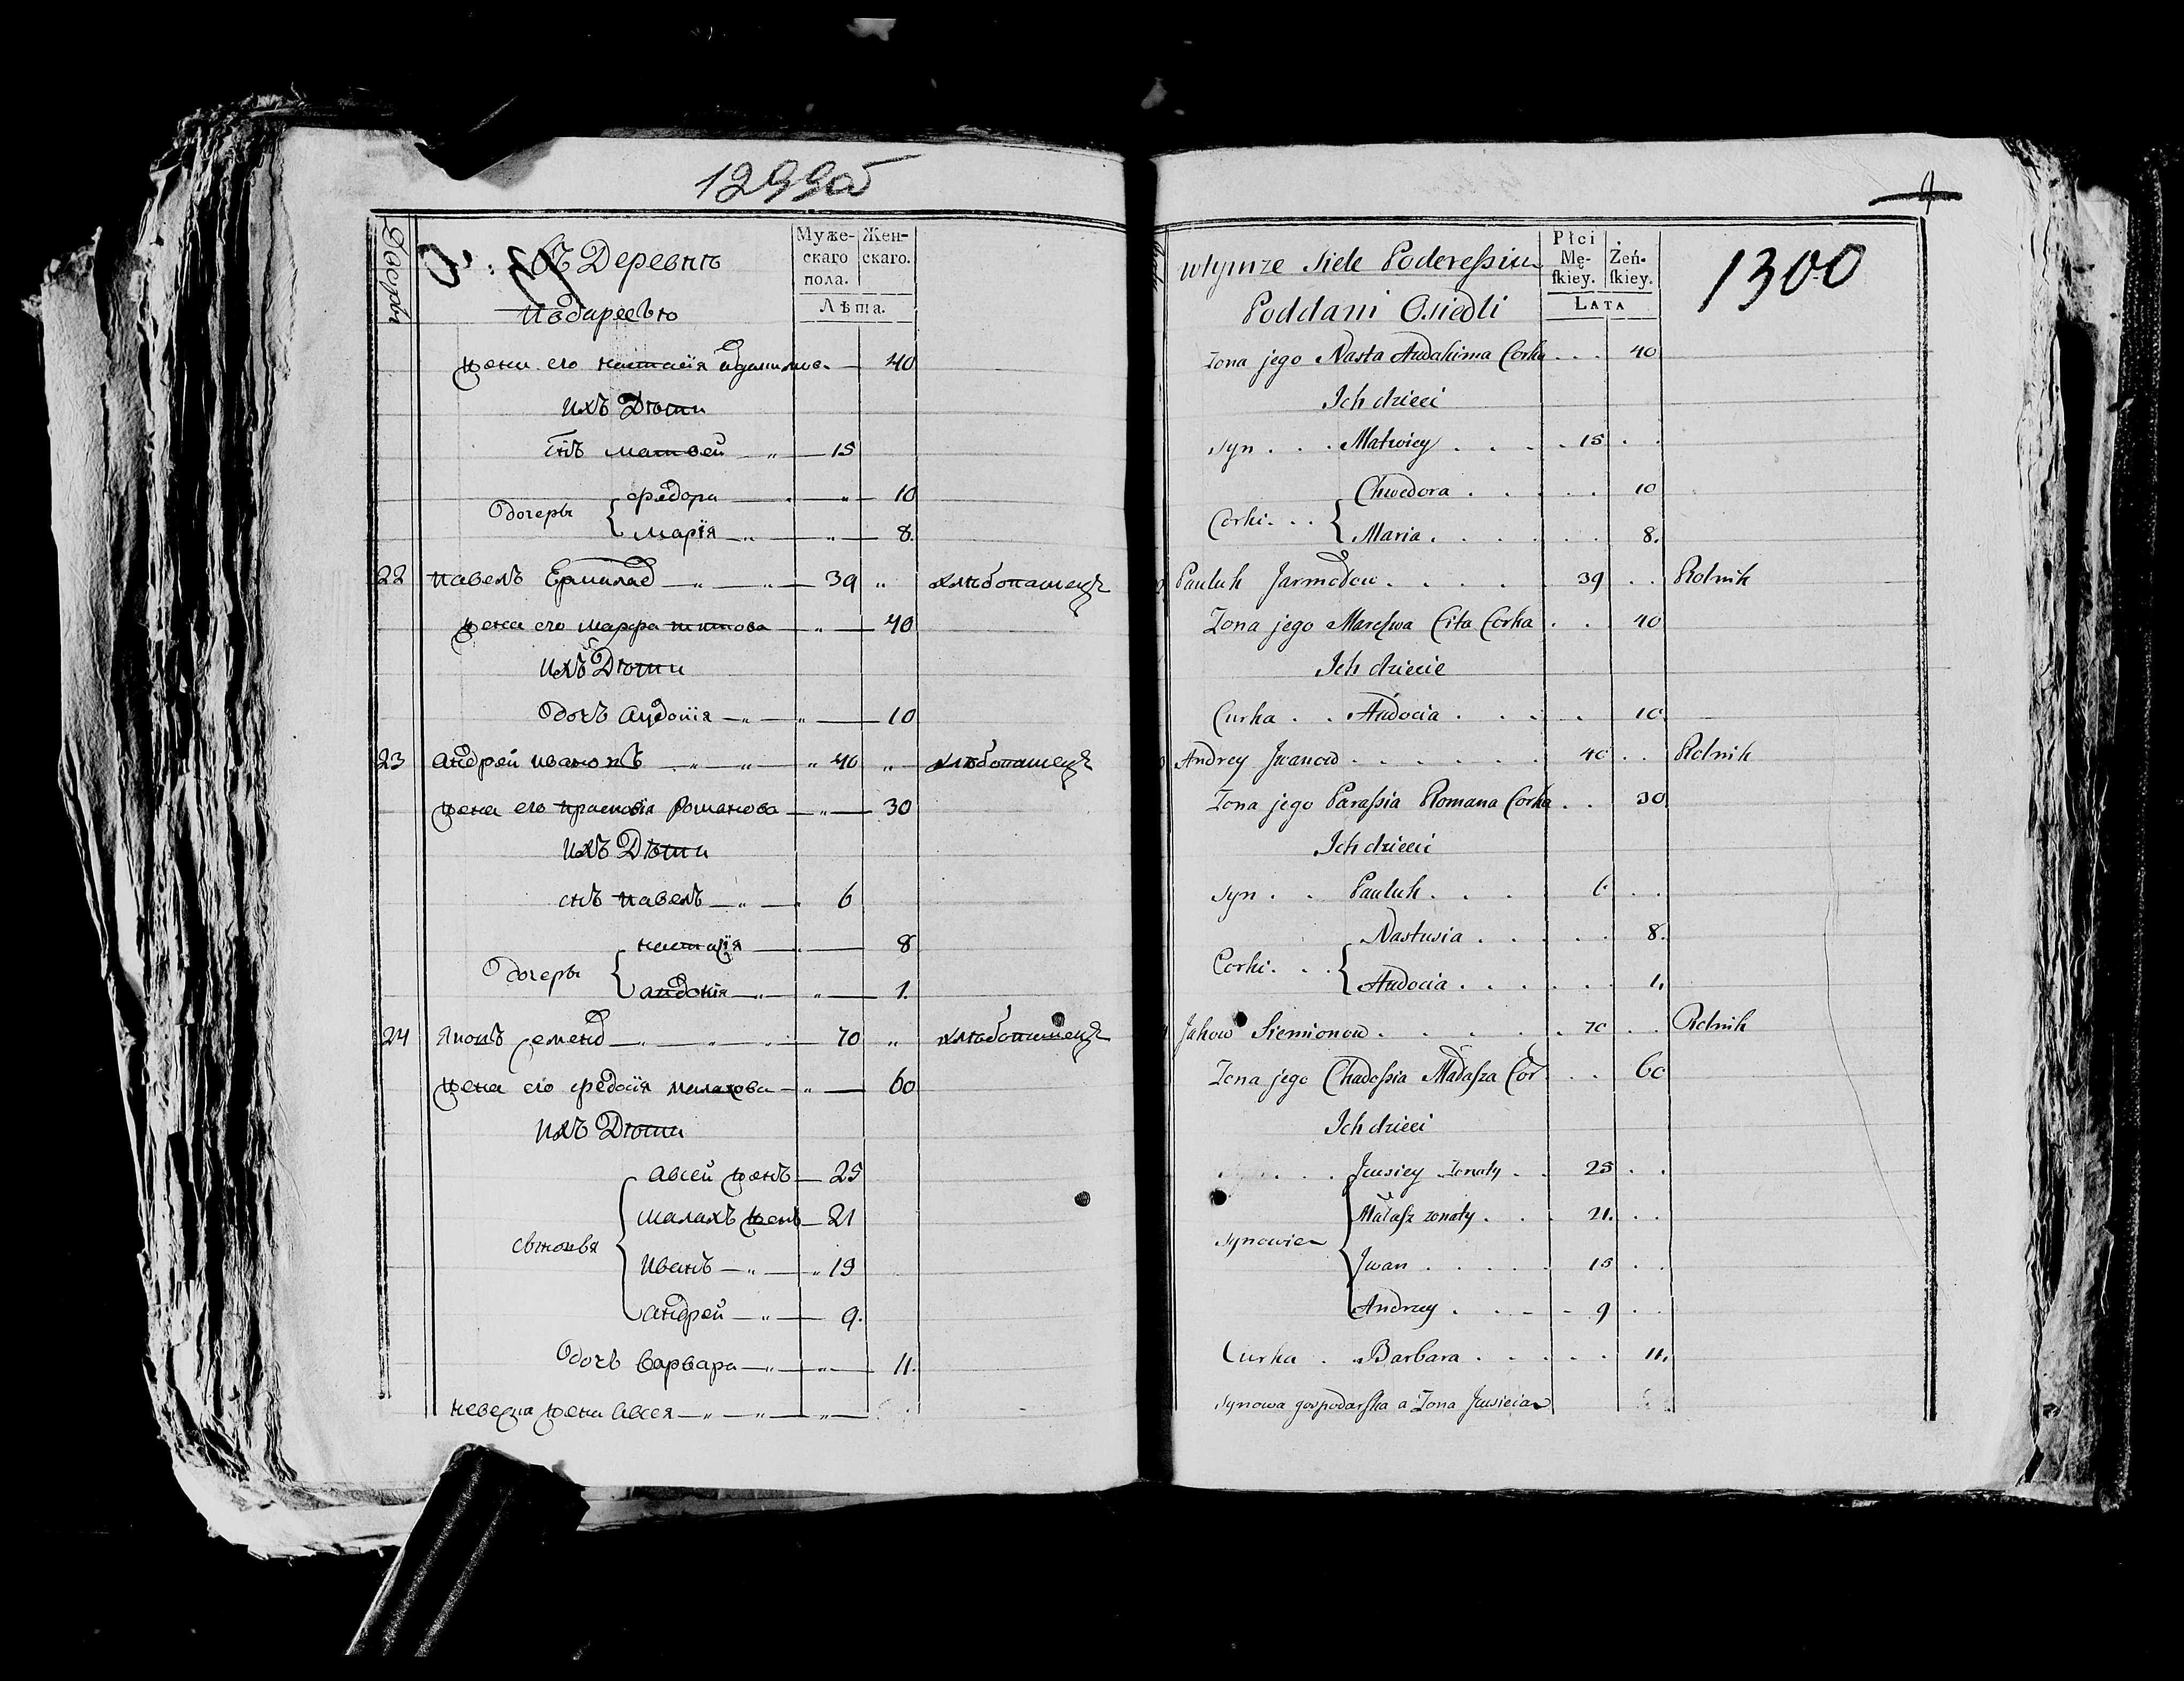 1299об
Мужескаго пола.
Женскаго.
Лѣта.
въ Деревнѣ
жена его настасія 40
ихъ Дѣти
снъ матвей 15
дочеръ
федора 10
марія 8.
22 павелъ Ермилов 39 хлѣбопашецъ
жена его марфа титова 40
ихъ Дѣти
дочъ аудотія 10
23 андрей ивановъ 40 хлѣбопашецъ
жена его прасковія романова 30
ихъ Дѣти
снъ павелъ 6
дочеръ
настасія 8
авдотія 1.
24 семенов 70 хлѣбопашецъ
жена его федосія малахова 60
ихъ Дѣти
сыновья
авсей женъ 25
малахъ женъ 21
иванъ 15
андрей 9.
дочъ варвара 11.
невеска жена авсея
1300
Płci Męſkiey.
Żeńſkiey.
LATA
wtymze Siele
Poddani Osiedli
Zona jego Nasta Audakima Corka 40
Ich dzieci
syn Matwiey 15
Corki
Chwedora 10
Maria 8.
Pauluk Jarmołow 39 Rolnik
Zona jego Marcſwa Cita Corka 40
Ich dziecie
Curka Audocia 10.
Andrey Iwanow 40 Rolnik
Zona jego Paraſsia Romana Corka 30
Ich dzieci
syn Pauluk 6
Corki
Nastusia 8.
Audocia 1.
Jakow Siemionow 70 Rolnik
Zona jego Chadoſsia Małaſza Cor 60
Ich dzieci
Synowie
Jausiey Zonaty 25
Małaſz zonaty 21.
Jwan 15
Andrzey 9
Curka Barbara 11.
synowa gospodarſka a Zona Jausieia